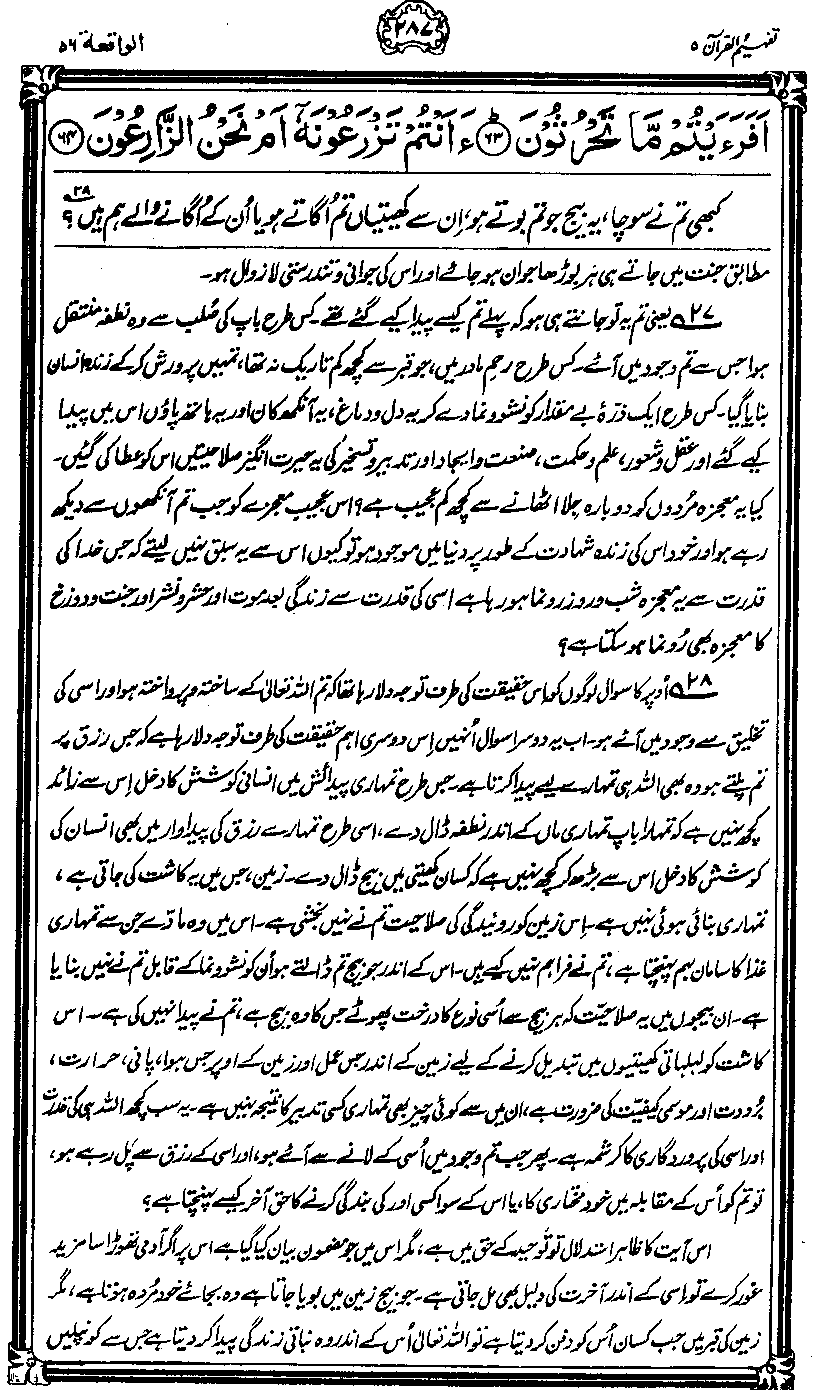 تفہیم القرآن ۵
۲۸۷
الواقعۃ ۵۶
اَفَرَءَيْتُمْ مَّا تَحْرُثُوْنَ ﴿۶۳﴾ ءَاَنْتُمْ تَزْرَعُوْنَهٗۤ اَمْ نَحْنُ الزّٰرِعُوْنَ ﴿۶۴﴾
کبھی تم نے سوچا، یہ بیج جو تم بوتے ہو، اِن سے کھیتیاں تم اُگاتے ہو یا اُن کے اُگانے والے ہم ہیں؟ ۲۸
مطابق جنت میں جاتے ہی ہر بوڑھا جوان ہو جائے اور اس کی جوانی و تندرستی لازوال ہو۔
۲۷ یعنی تم یہ تو جانتے ہی ہو کہ پہلے تم کیسے پیدا کیے گئے تھے۔ کس طرح باپ کی صُلب سے وہ نطفہ منتقل
ہوا جس سے تم وجود میں آئے۔ کس طرح رحمِ مادر میں، جو قبر سے کچھ کم تاریک نہ تھا، تمہیں پرورش کر کے زندہ انسان
بنایا گیا۔ کس طرح ایک ذرۂ بے مقدار کو نشوونما دے کر یہ دل و دماغ، یہ آنکھ کان اور یہ ہاتھ پاؤں اس میں پیدا
کیے گئے اور عقل و شعور، علم و حکمت، صنعت و ایجاد اور تدبیر و تسخیر کی یہ حیرت انگیز صلاحیتیں اس کو عطا کی گئیں۔
کیا یہ معجزہ مُردوں کو دوبارہ جِلا اٹھانے سے کچھ کم عجیب ہے؟ اس عجیب معجزے کو جب تم آنکھوں سے دیکھ
رہے ہو اور خود اس کی زندہ شہادت کے طور پر دنیا میں موجود ہو تو کیوں اس سے یہ سبق نہیں لیتے کہ جس خدا کی
قدرت سے یہ معجزہ شب و روز رونما ہو رہا ہے اسی کی قدرت سے زندگی بعد موت اور حشر و نشر اور جنت و دوزخ
کا معجزہ بھی رُونما ہو سکتا ہے؟
۲۸ اُوپر کا سوال لوگوں کو اِس حقیقت کی طرف توجہ دلا رہا تھا کہ تم اللہ تعالیٰ کے ساختہ و پرداختہ ہو اور اسی کی
تخلیق سے وجود میں آئے ہو۔ اب یہ دوسرا سوال اُنہیں اِس دوسری اہم حقیقت کی طرف توجہ دلا رہا ہے کہ جس رزق پر
تم پلتے ہو وہ بھی اللہ ہی تمہارے لیے پیدا کرتا ہے۔ جس طرح تمہاری پیدائش میں انسانی کوشش کا دخل اِس سے زائد
کچھ نہیں ہے کہ تمہارا باپ تمہاری ماں کے اندر نطفہ ڈال دے، اسی طرح تمہارے رزق کی پیداوار میں بھی انسان کی
کوشش کا دخل اس سے بڑھ کر کچھ نہیں ہے کہ کسان کھیتی میں بیج ڈال دے۔ زمین، جس میں یہ کاشت کی جاتی ہے،
تمہاری بنائی ہوئی نہیں ہے۔ اِس زمین کو روئیدگی کی صلاحیت تم نے نہیں بخشی ہے۔ اس میں وہ مادّے جن سے تمہاری
غذا کا سامان بہم پہنچتا ہے، تم نے فراہم نہیں کیے ہیں۔ اس کے اندر جو بیج تم ڈالتے ہو اُن کو نشوونما کے قابل تم نے نہیں بنایا
ہے۔ ان بیجوں میں یہ صلاحیّت کہ ہر بیج سے اُسی نوع کا درخت پھوٹے جس کا وہ بیج ہے، تم نے پیدا نہیں کی ہے۔ اس
کاشت کو لہلہاتی کھیتیوں میں تبدیل کرنے کے لیے زمین کے اندر جس عمل اور زمین کے اوپر جس ہوا، پانی، حرارت،
بُرودت اور موسمی کیفیّت کی ضرورت ہے، ان میں سے کوئی چیز بھی تمہاری کسی تدبیر کا نتیجہ نہیں ہے۔ یہ سب کچھ اللہ ہی کی قدرت
اور اسی کی پروردگاری کا کرشمہ ہے۔ پھر جب تم وجود میں اُسی کے لانے سے آئے ہو، اور اسی کے رزق سے پَل رہے ہو،
تو تم کو اُس کے مقابلہ میں خود مختاری کا، یا اس کے سوا کسی اور کی بندگی کرنے کا حق آخر کیسے پہنچتا ہے؟
اس آیت کا ظاہر استدلال تو توحید کے حق میں ہے، مگر اس میں جو مضمون بیان کیا گیا ہے اس پر اگر آدمی تھوڑا سا مزید
غور کرے تو اسی کے اندر آخرت کی دلیل بھی مل جاتی ہے۔ جو بیج زمین میں بویا جاتا ہے وہ بجائے خود مُردہ ہوتا ہے، مگر
زمین کی قبر میں جب کسان اُس کو دفن کر دیتا ہے تو اللہ تعالیٰ اُس کے اندر وہ نباتی زندگی پیدا کر دیتا ہے جس سے کونپلیں